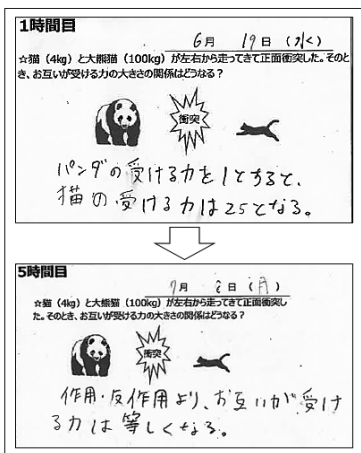 1時間目
6月 19日 (水)
☆猫(4kg)と大熊猫(100kg)が左右から走ってきて正面衝突した。そのと
き、お互いが受ける力の大きさの関係はどうなる?
衝突
パンダの受ける力を1とすると、
猫の受ける力は25となる。
5時間目
7月 日 (月)
☆猫(4kg)と大熊猫(100kg)が左右から走ってきて正面衝突し
た。そのとき、お互いが受ける力の大きさの関係はどうなる?
衝突
作用・反作用より、お互いが受け
る力は等しくなる。